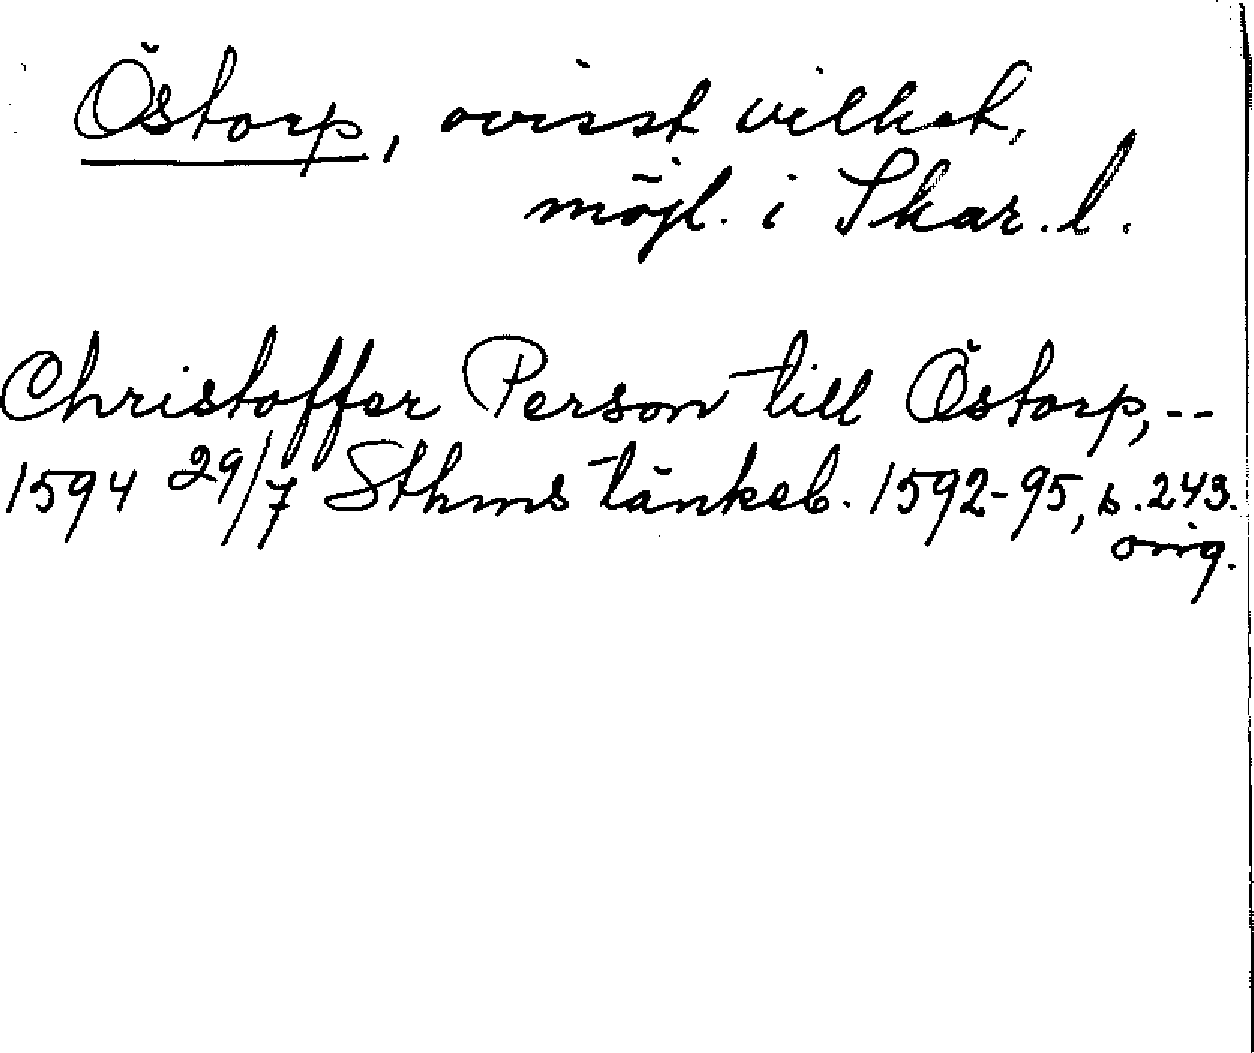 Östorp, ovisst vilket,
möjl. i Skar. l.
Christoffer Person till Östorp, --
1594 29/7 Sthms tänkeb. 1592-95, s. 243.
orig.